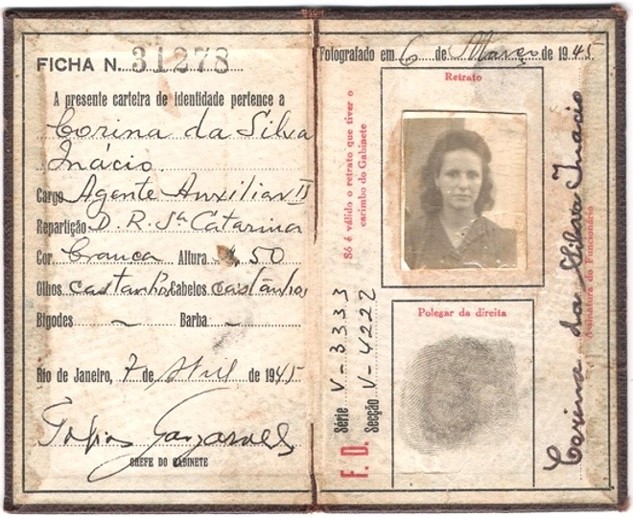 FICHA N. 31278
A presente carteira de identidade pertence a
Corina da Silva
Inácio.
Cargo Agente Auxiliar
Repartição D. R. Sta Catarina
Cor. branca Altura 1,50
Olhos castanhos Cabelos castanhos
Bigodes ~ Barba ~
Rio de Janeiro, 7 de Abril de 1945
CHEFE DO GABINETE
Fotografado em 6 de Março de 1945
Retrato
Só é válido o retrato que tiver o
carimbo do Gabinete
Polegar da direita
F. D. Série V-3333
Secção V-4222
Corina da Silva Inácio
Assinatura do Funcionário